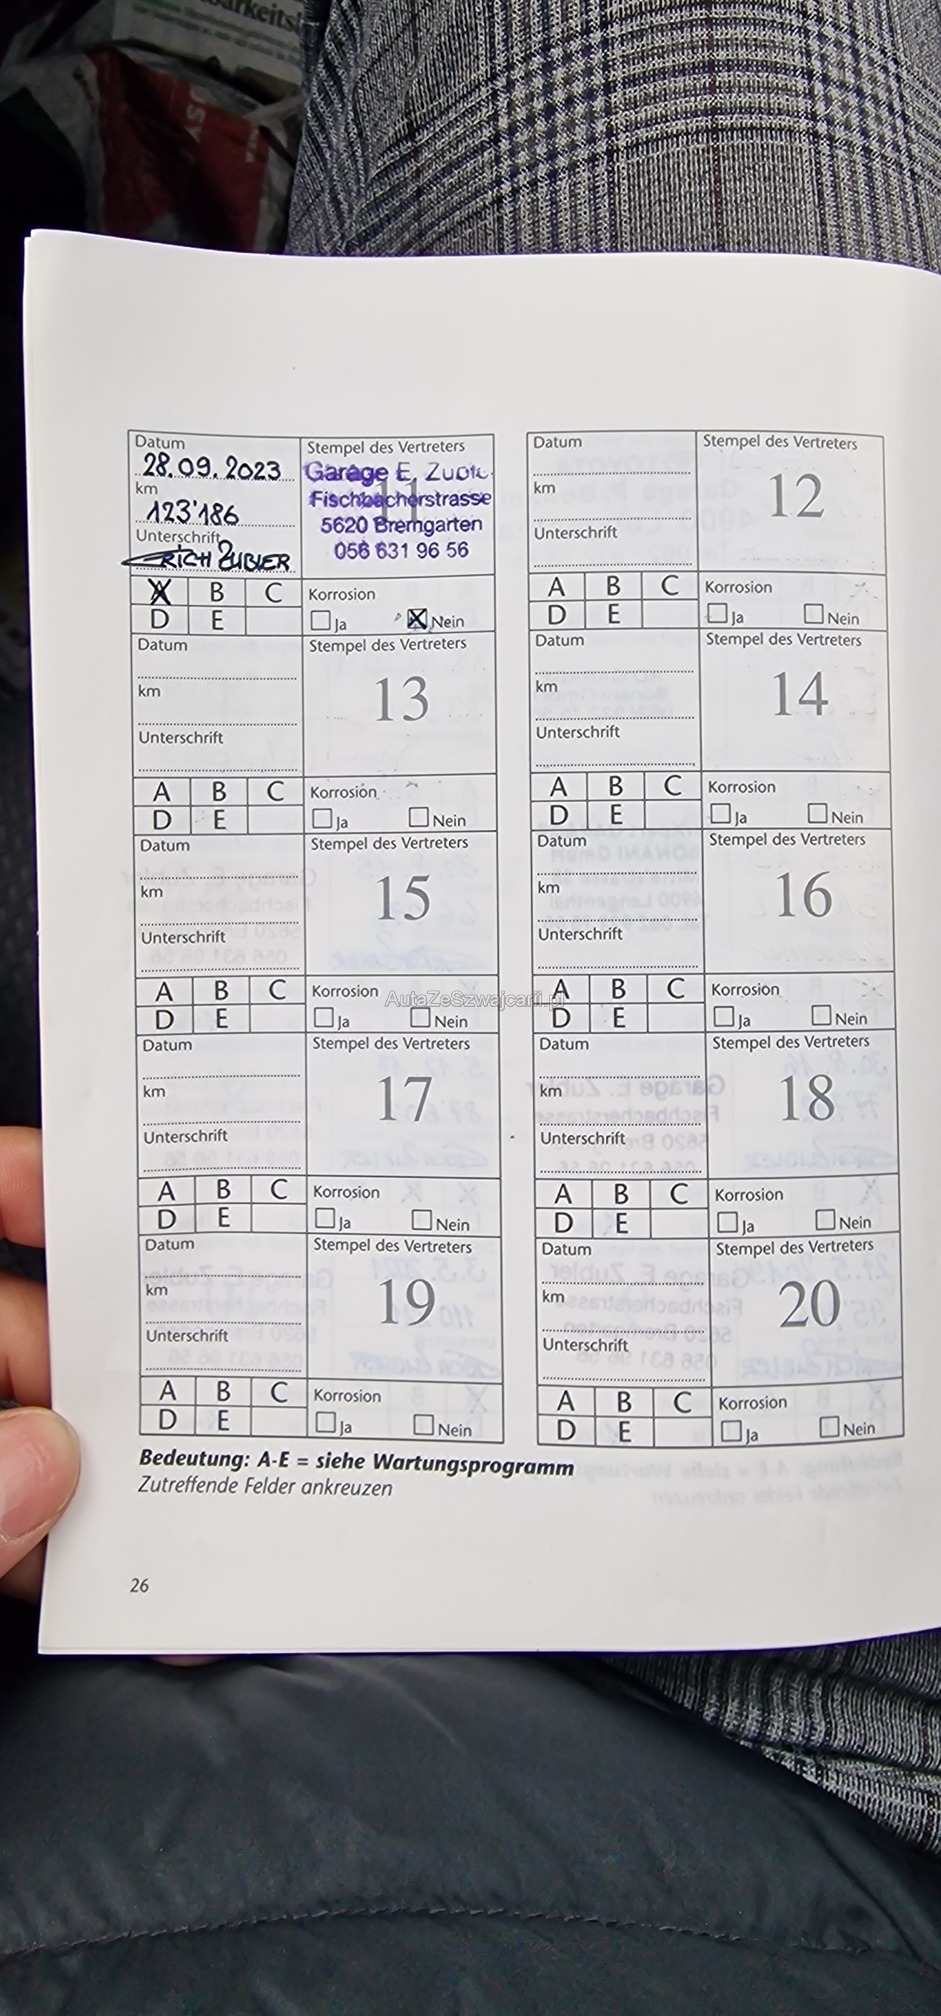 Datum
28.09.2023
km
123'186
Unterschrift
ERICH ZUBLER
Stempel des Vertreters
Garage E.
Fischbacherstrasse
5620 Bremgarten
056 631 96 56
11
A B C
D E
Korrosion
Ja Nein
Datum
km
Unterschrift
Stempel des Vertreters
12
A B C
D E
Korrosion
Ja Nein
Datum
km
Unterschrift
Stempel des Vertreters
13
A B C
D E
Korrosion
Ja Nein
Datum
km
Unterschrift
Stempel des Vertreters
14
A B C
D E
Korrosion
Ja Nein
Datum
km
Unterschrift
Stempel des Vertreters
15
A B C
D E
Korrosion
Ja Nein
Datum
km
Unterschrift
Stempel des Vertreters
16
A B C
D E
Korrosion
Ja Nein
AutaZeSzwajcarii.pl
Datum
km
Unterschrift
Stempel des Vertreters
17
A B C
D E
Korrosion
Ja Nein
Datum
km
Unterschrift
Stempel des Vertreters
18
A B C
D E
Korrosion
Ja Nein
Datum
km
Unterschrift
Stempel des Vertreters
19
A B C
D E
Korrosion
Ja Nein
Datum
km
Unterschrift
Stempel des Vertreters
20
A B C
D E
Korrosion
Ja Nein
Bedeutung: A-E = siehe Wartungsprogramm
Zutreffende Felder ankreuzen
26